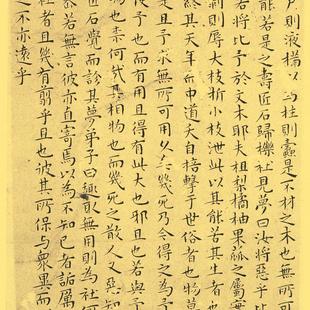 戶則液樠以為柱則蠹是不材之木也無所可
能若是之壽匠石歸櫟社見夢曰汝將惡乎比
若將比予于文木耶夫柤梨橘柚果蓏之屬
剝則辱大枝折小枝泄此以其能苦其生者
終其天年而中道夭自掊擊于世俗者也物莫
是且予求無所可用久矣幾死乃今得之為予
使予也而有用且得有此大也邪且也若與予
物也柰何哉其相物也而幾死之散人又惡知
匠石覺而診其夢弟子曰趣取無用則為社何
密若無言彼亦直寄焉以為不知己者詬厲
社者且幾有翦乎且也彼其所保與衆異而
之不亦遠乎